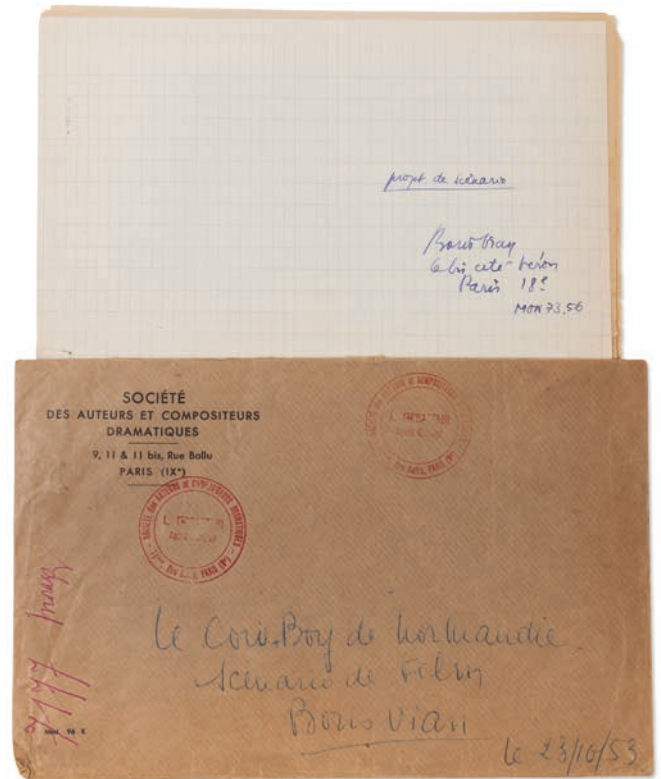 projet de scénario
Boris Vian
6 bis cité Véron
Paris 18e
MON 73.56
SOCIÉTÉ
DES AUTEURS ET COMPOSITEURS
DRAMATIQUES
9, 11 & 11 bis, Rue Ballu
PARIS (IXe)
Le Cow-Boy de Normandie.
Scénario de Film
Boris Vian
le 23/10/53